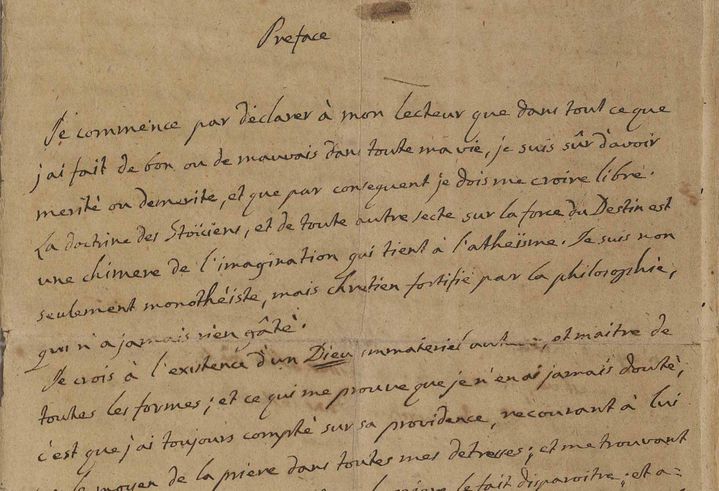 Preface
Je commence par déclarer à mon lecteur que dans tout ce que
j'ai fait de bon ou de mauvais dans toute ma vie, je suis sûr d'avoir
merité ou demerité, et que par consequent je dois me croire libre.
La doctrine des Stoïciens, et de toute autre secte sur la force du Destin est
une chimere de l'imagination qui tient à l'atheïsme. Je suis non
seulement monothéiste, mais chretien fortifié par la philosophie,
qui n'a jamais rien gâté.
Je crois à l'existence d'un Dieu immateriel et maitre de
toutes les formes; et ce qui me prouve que je n'en ai jamais douté,
c'est que j'ai toujours compté sur sa providence, recourant à lui
moyen de la prière dans toutes mes detresses; et me trouvant
le fait disparoitre; et a-